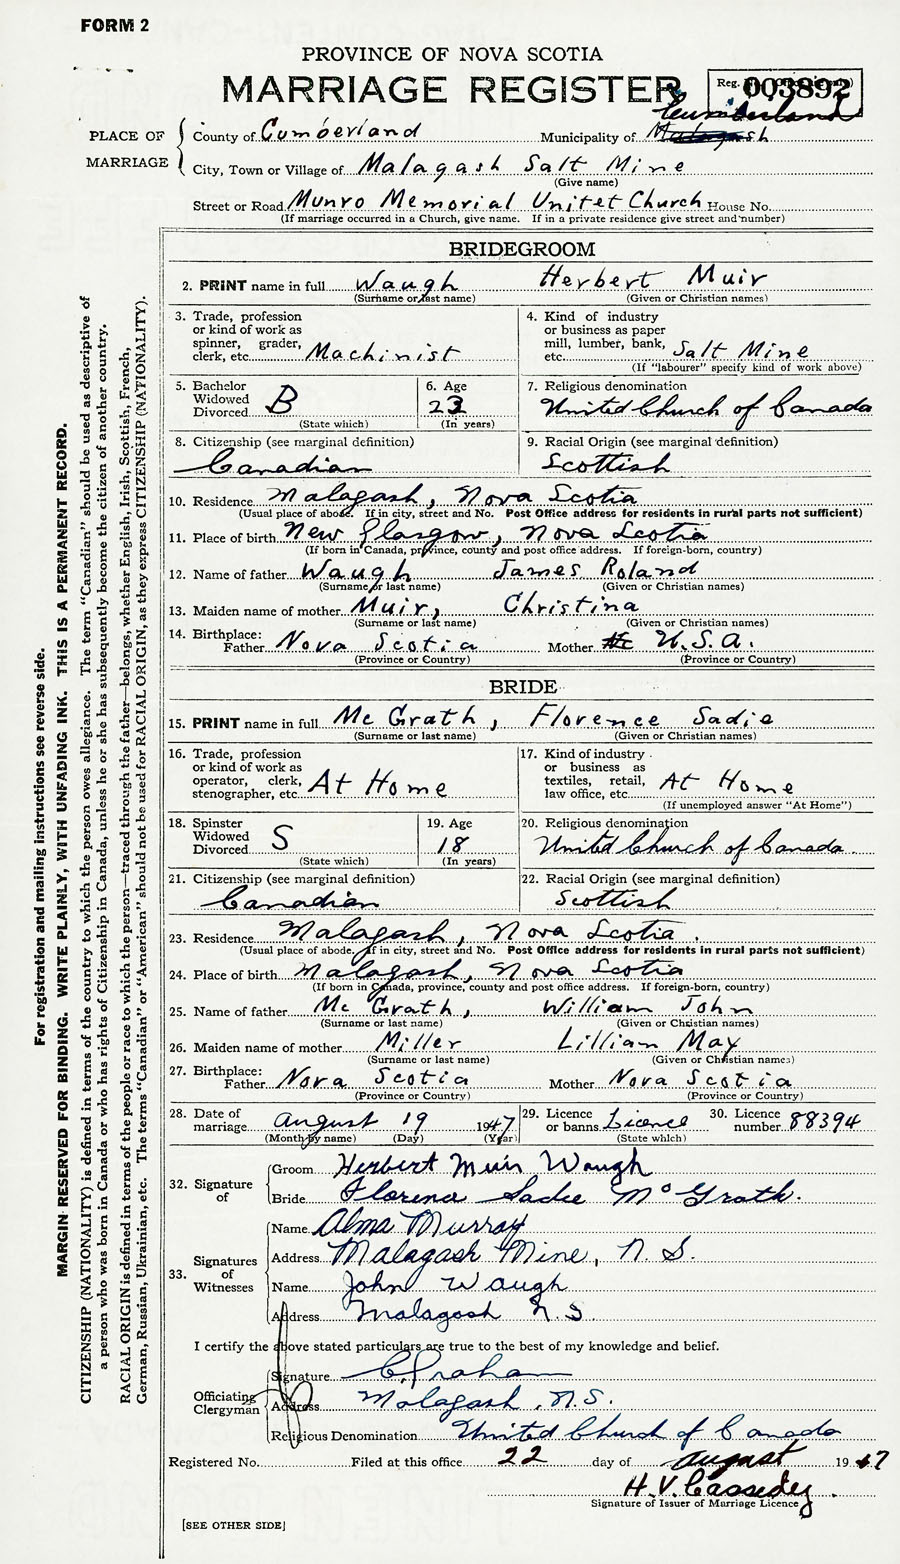 FORM 2
PROVINCE OF NOVA SCOTIA
MARRIAGE REGISTER
Reg. No. 003892
PLACE OF MARRIAGE
County of Cumberland Municipality of Cumberland
City, Town or Village of Malagash Salt Mine
(Give name)
Street or Road Munro Memorial Unitet Church House No.
(If marriage occurred in a Church, give name. If in a private residence give street and number)
BRIDEGROOM
2. PRINT name in full Waugh Herbert Muir
(Surname or last name) (Given or Christian names)
3. Trade, profession or kind of work as spinner, grader, clerk, etc. Machinist
4. Kind of industry or business as paper mill, lumber, bank, etc. Salt Mine
(If "labourer" specify kind of work above)
5. Bachelor Widowed Divorced B
(State which)
6. Age 23
(In years)
7. Religious denomination
United Church of Canada
8. Citizenship (see marginal definition)
Canadian
9. Racial Origin (see marginal definition)
Scottish
10. Residence Malagash, Nova Scotia
(Usual place of abode. If in city, street and No. Post Office address for residents in rural parts not sufficient)
11. Place of birth New Glasgow, Nova Scotia
(If born in Canada, province, county and post office address. If foreign-born, country)
12. Name of father Waugh James Roland
(Surname or last name) (Given or Christian names)
13. Maiden name of mother Muir, Christina
(Surname or last name) (Given or Christian names)
14. Birthplace:
Father Nova Scotia Mother U.S.A.
(Province or Country) (Province or Country)
BRIDE
15. PRINT name in full Mc Grath, Florence Sadie
(Surname or last name) (Given or Christian names)
16. Trade, profession or kind of work as operator, clerk, stenographer, etc. At Home
17. Kind of industry or business as textiles, retail, law office, etc. At Home
(If unemployed answer "At Home")
18. Spinster Widowed Divorced S
(State which)
19. Age 18
(In years)
20. Religious denomination
United Church of Canada
21. Citizenship (see marginal definition)
Canadian
22. Racial Origin (see marginal definition)
Scottish
23. Residence Malagash, Nova Scotia.
(Usual place of abode. If in city, street and No. Post Office address for residents in rural parts not sufficient)
24. Place of birth Malagash, Nova Scotia
(If born in Canada, province, county and post office address. If foreign-born, country)
25. Name of father Mc Grath, William John
(Surname or last name) (Given or Christian names)
26. Maiden name of mother Miller Lillian May
(Surname or last name) (Given or Christian names)
27. Birthplace:
Father Nova Scotia Mother Nova Scotia
(Province or Country) (Province or Country)
28. Date of marriage August 19 1947
(Month by name) (Day) (Year)
29. Licence or banns Licence
(State which)
30. Licence number 88394
32. Signature of
Groom Herbert Muir Waugh
Bride Florence Sadie McGrath.
33. Signatures of Witnesses
Name Alma Murray
Address Malagash Mine, N.S.
Name John Waugh
Address Malagash N.S.
I certify the above stated particulars are true to the best of my knowledge and belief.
Officiating Clergyman
Signature
Address Malagash, N.S.
Religious Denomination United Church of Canada
Registered No. Filed at this office 22 day of August 1947
H.V. Cassedey.
Signature of Issuer of Marriage Licence
[SEE OTHER SIDE]
For registration and mailing instructions see reverse side.
MARGIN RESERVED FOR BINDING. WRITE PLAINLY, WITH UNFADING INK. THIS IS A PERMANENT RECORD.
CITIZENSHIP (NATIONALITY) is defined in terms of the country to which the person owes allegiance. The term "Canadian" should be used as descriptive of
a person who was born in Canada or who has rights of Citizenship in Canada, unless he or she has subsequently become the citizen of another country.
RACIAL ORIGIN is defined in terms of the people or race to which the person—traced through the father—belongs, whether English, Irish, Scottish, French,
German, Russian, Ukrainian, etc. The terms "Canadian" or "American" should not be used for RACIAL ORIGIN, as they express CITIZENSHIP (NATIONALITY).